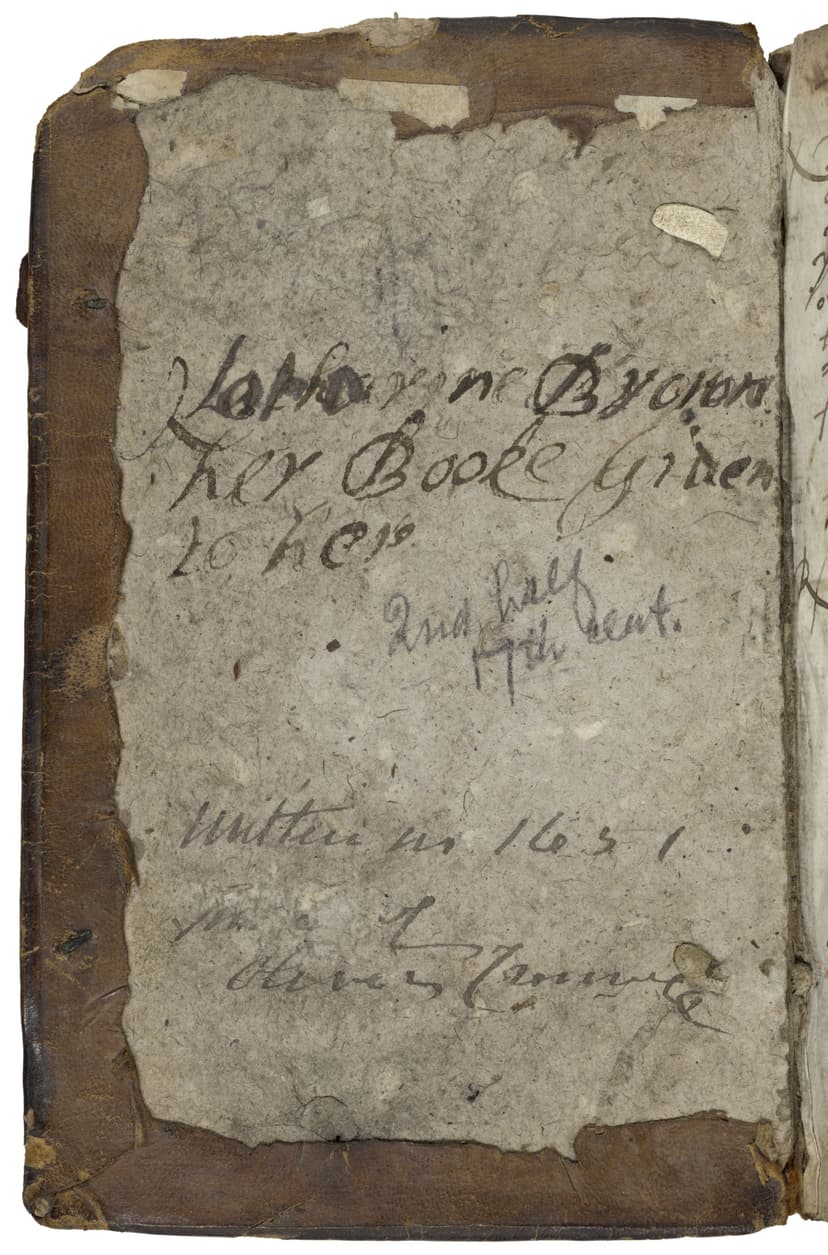 Katharine Brown
her Booke Giuen
to her
2nd half
17th cent.
Written in 1651
time of
Oliver Cromwell